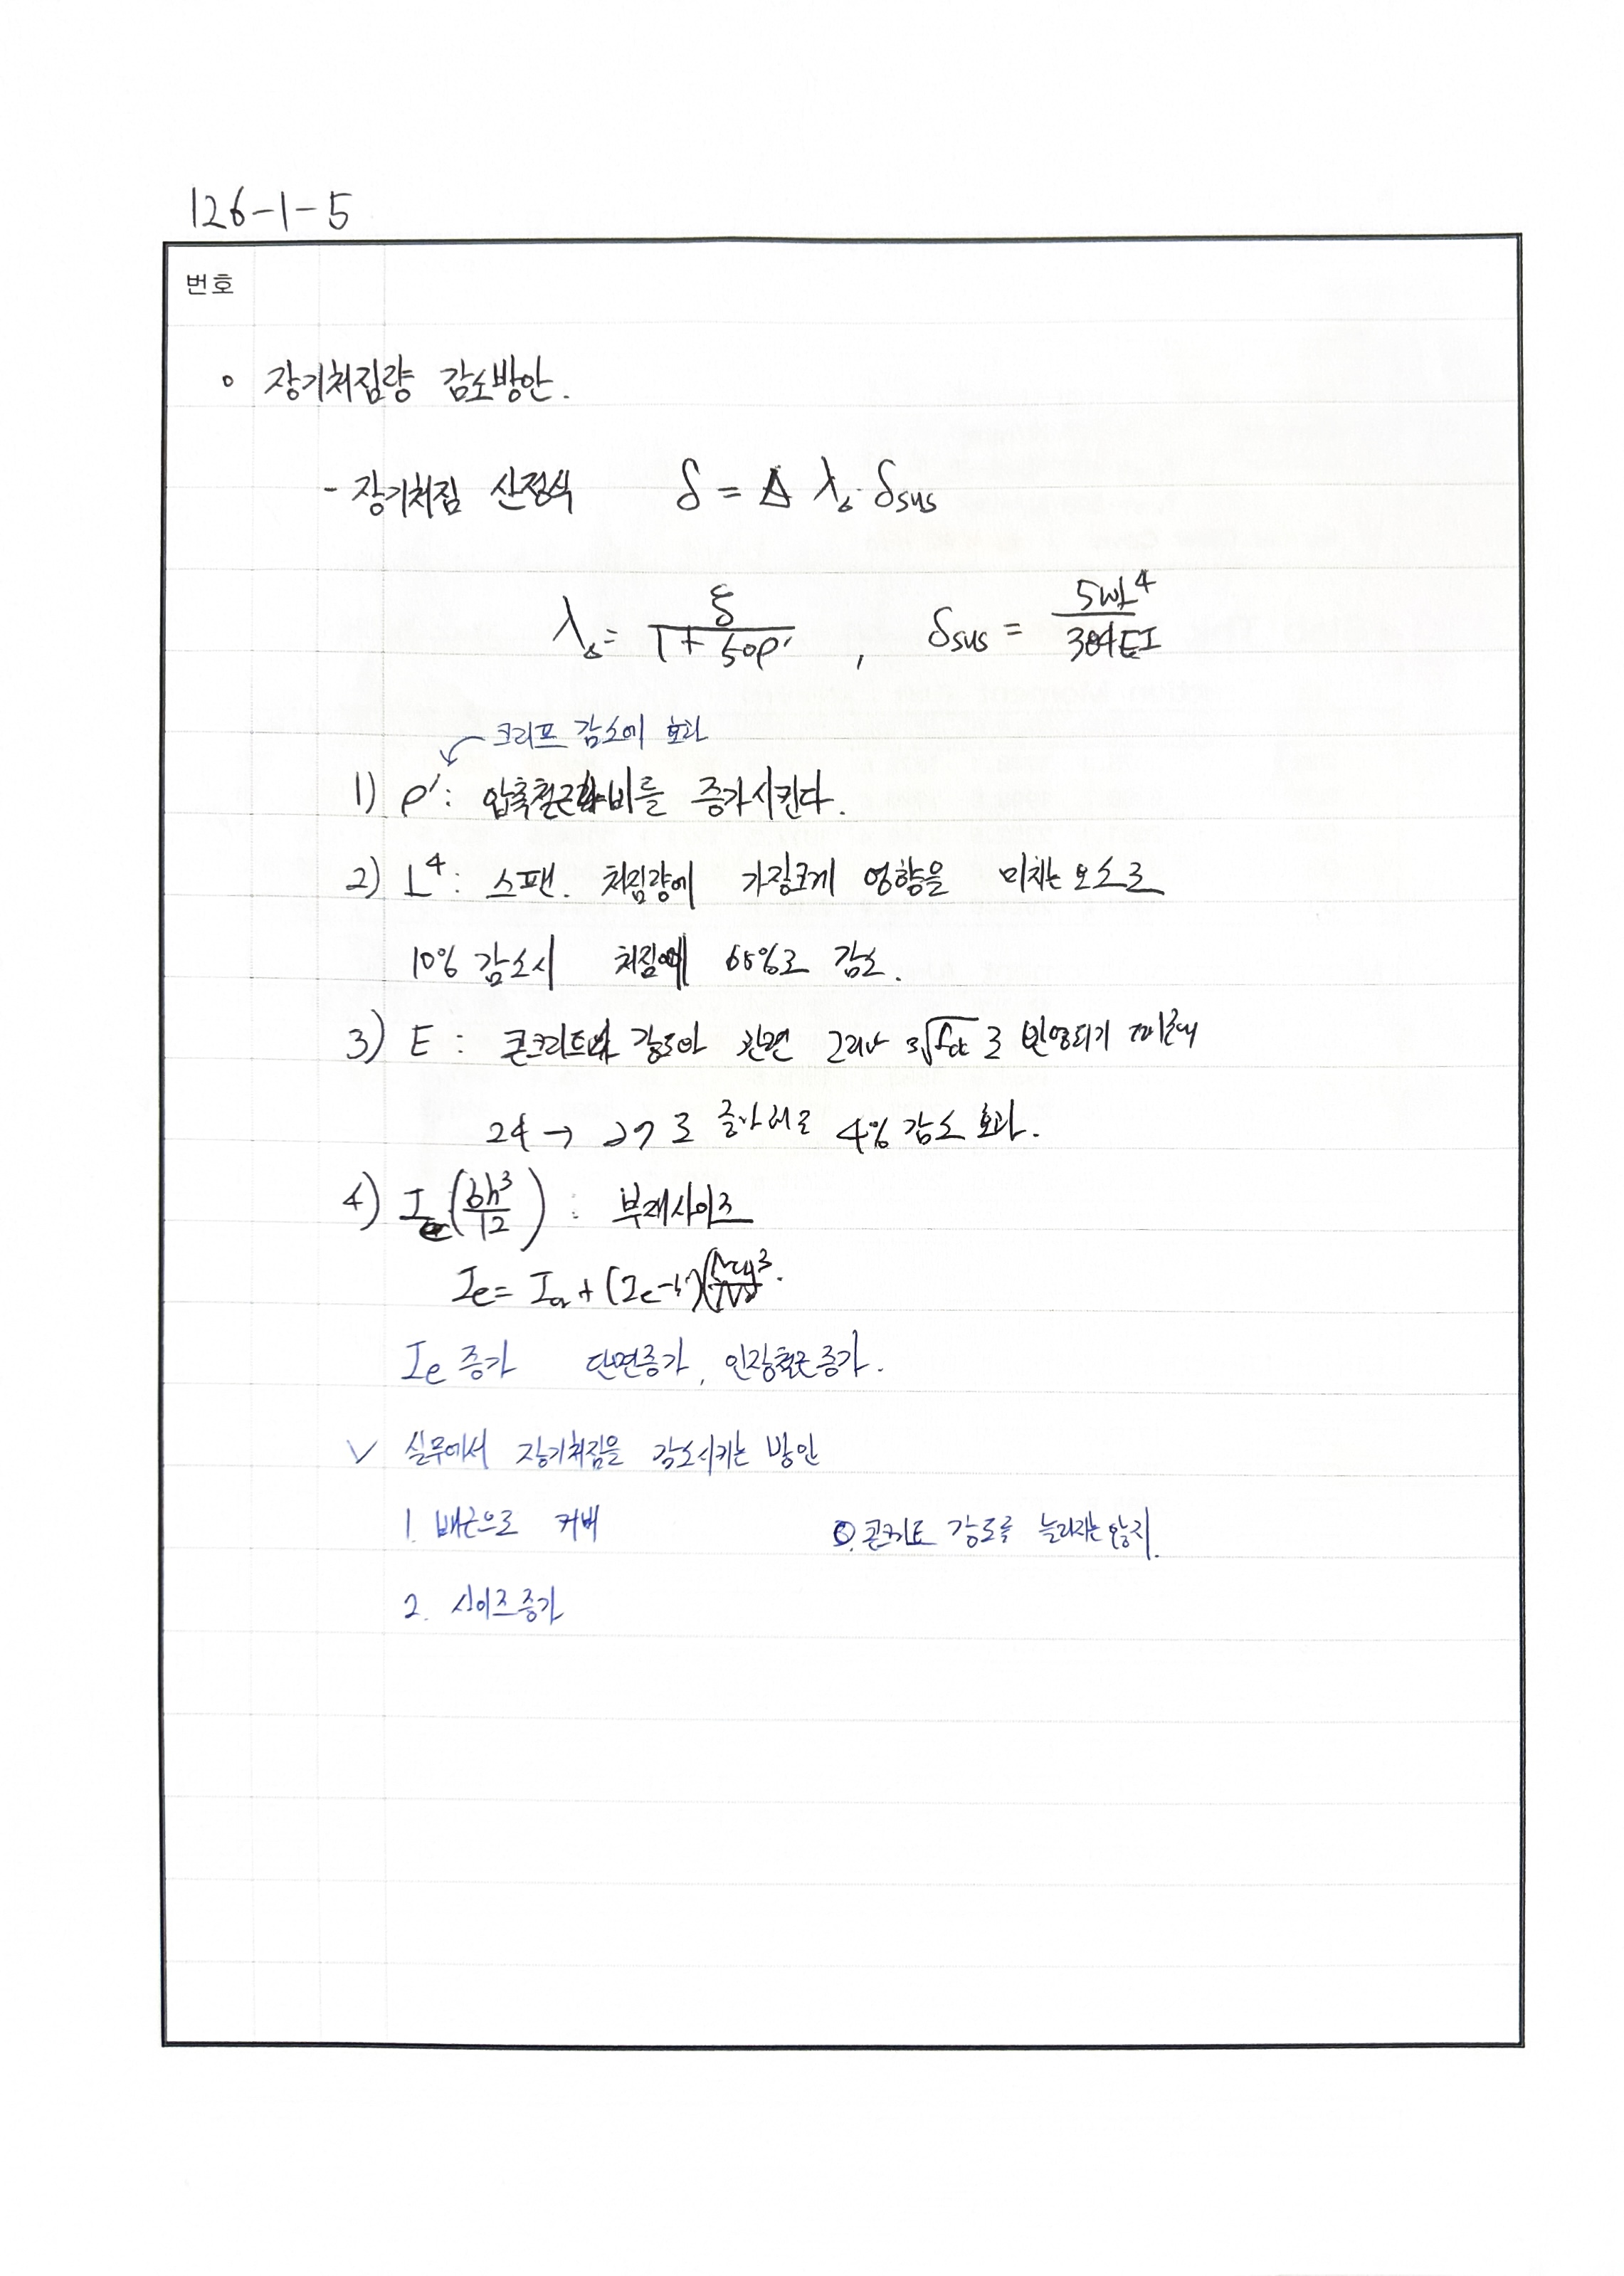 126-1-5
번호
○ 장기처짐량 감소방안.
- 장기처짐 산정식 δ = λ_Δ · δsus
λ_Δ = ξ / (1 + 50ρ') , δsus = 5wL⁴ / 384EI
크리프 감소에 효과
1) ρ' : 압축철근비를 증가시킨다.
2) L⁴ : 스팬. 처짐량에 가장크게 영향을 미치는 요소로
10% 감소시 처짐 65%로 감소.
3) E : 콘크리트 강도와 관련 그러나 ³√fck 로 반영되기 때문에
24 → 27 로 4% 감소 효과.
4) Ie (bh³/12) : 부재사이즈
Ie =
Ie 증가 단면증가, 인장철근증가.
√ 실무에서 장기처짐을 감소시키는 방안
1. 배근으로 커버 0. 콘크리트 강도를 늘리지는 않지.
2. 사이즈증가